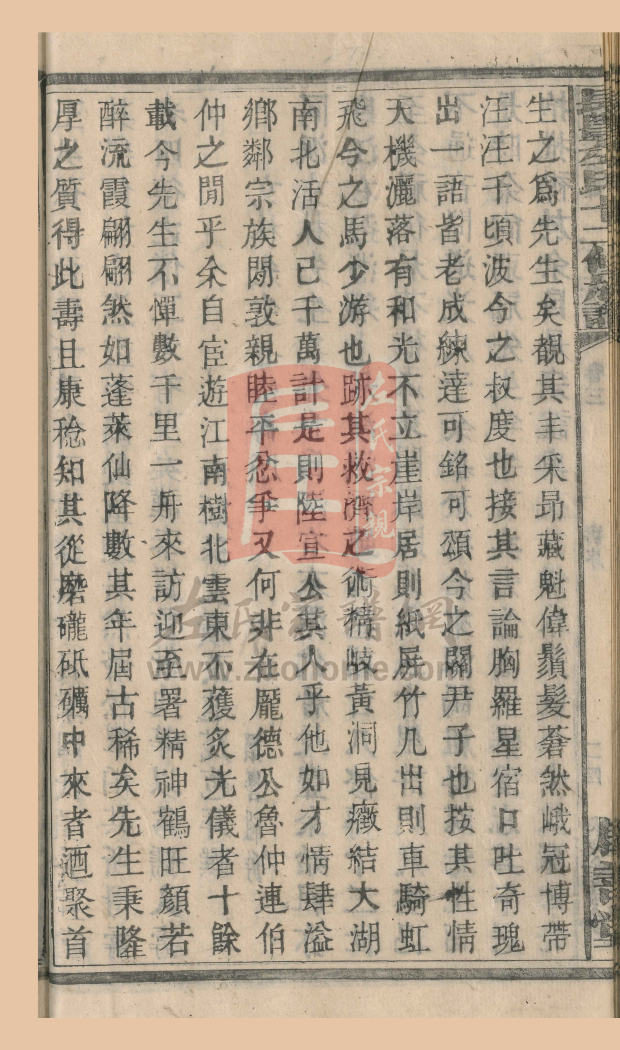 生之爲先生矣覩其丰采昂藏魁偉鬚髮蒼然峨冠博帶
汪汪千頃波今之叔度也接其言論胸羅星宿口吐奇瑰
出一語皆老成練達可銘可頌今之關尹子也按其性情
天機灑落有和光不立崖岸居則紙屏竹几出則車騎虹
飛今之馬少游也跡其救濟之術精岐黃洞見癥結大湖
南北活人已千萬計是則陸宣公其人乎他如才情肆溢
鄉鄰宗族間敦親睦平忿爭又何非在龐德公魯仲連伯
仲之間乎余自宦遊江南樹北雲東不獲炙光儀者十餘
載今先生不憚數千里一舟來訪迎至署精神鶴旺顏若
醉流霞翩翩然如蓬萊仙降數其年屆古稀矣先生秉隆
厚之質得此壽且康稔知其從磨礲砥礪中來者迺聚首
左氏宗親
www.zuohome.com